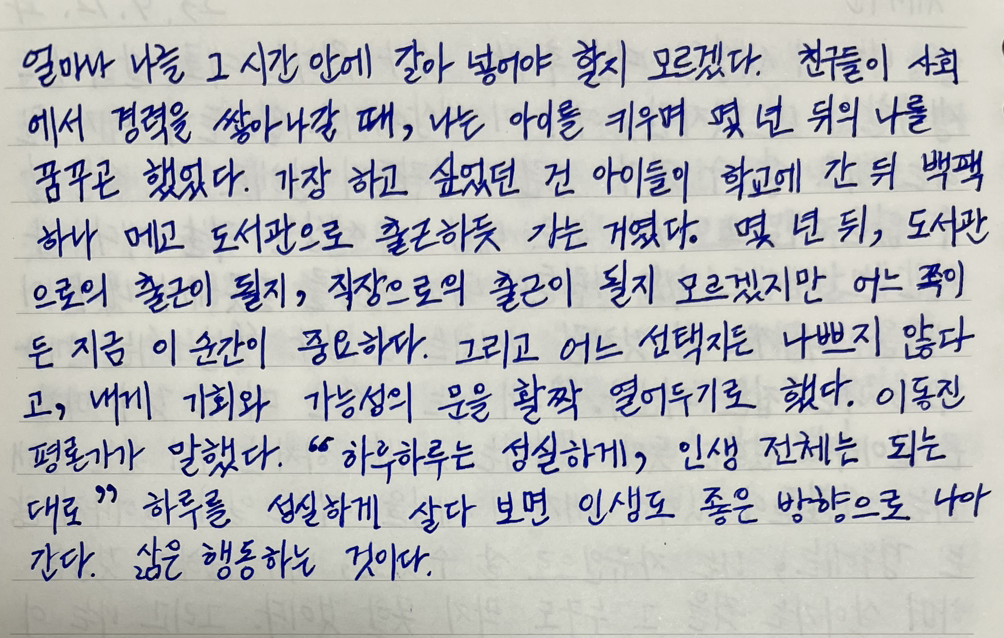 얼마나 나를 그 시간 안에 갈아 넣어야 할지 모르겠다. 친구들이 사회
에서 경력을 쌓아나갈 때, 나는 아이를 키우며 몇 년 뒤의 나를
꿈꾸곤 했었다. 가장 하고 싶었던 건 아이들이 학교에 간 뒤 백팩
하나 메고 도서관으로 출근하듯 가는 거였다. 몇 년 뒤, 도서관
으로의 출근이 될지, 직장으로의 출근이 될지 모르겠지만 어느 쪽이
든 지금 이 순간이 중요하다. 그리고 어느 선택지든 나쁘지 않다
고, 내게 기회와 가능성의 문을 활짝 열어두기로 했다. 이동진
평론가가 말했다. “하루하루는 성실하게, 인생 전체는 되는
대로” 하루를 성실하게 살다 보면 인생도 좋은 방향으로 나아
간다. 삶은 행동하는 것이다.